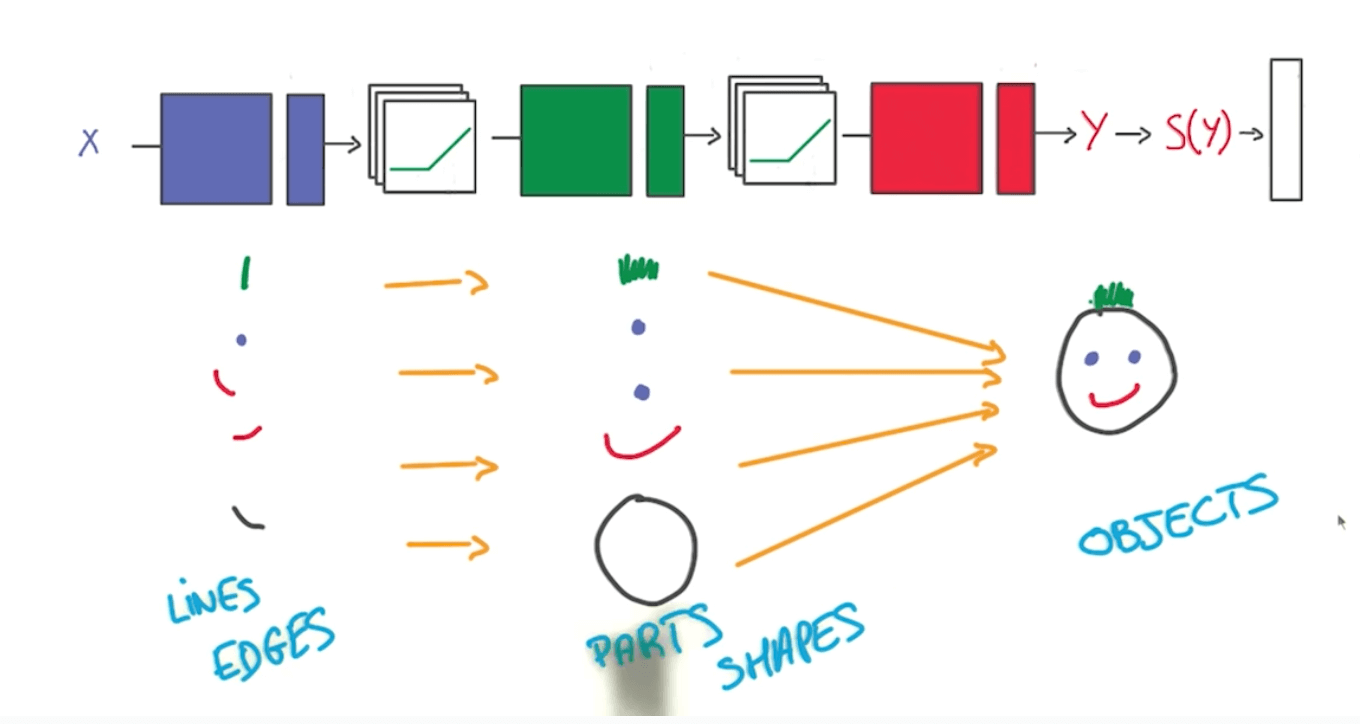 X
Y
S(Y)
LINES
EDGES
PARTS
SHAPES
OBJECTS